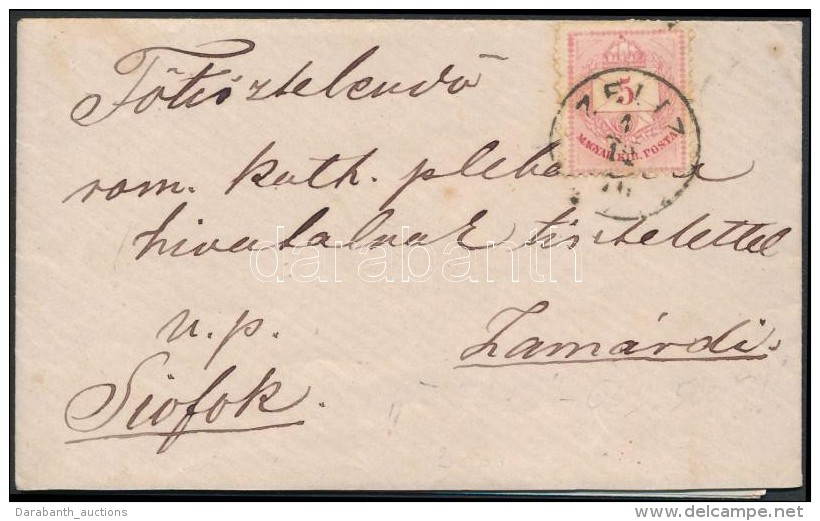 Főtisztelendő
rom. kath. pleb
hivatalnak tisztelettel
u. p.
Zamárdi.
Siófok.
5
MAGYAR KIR. POSTA
ZELIZ
darabanth
Darabanth_auctions
delcampe.net